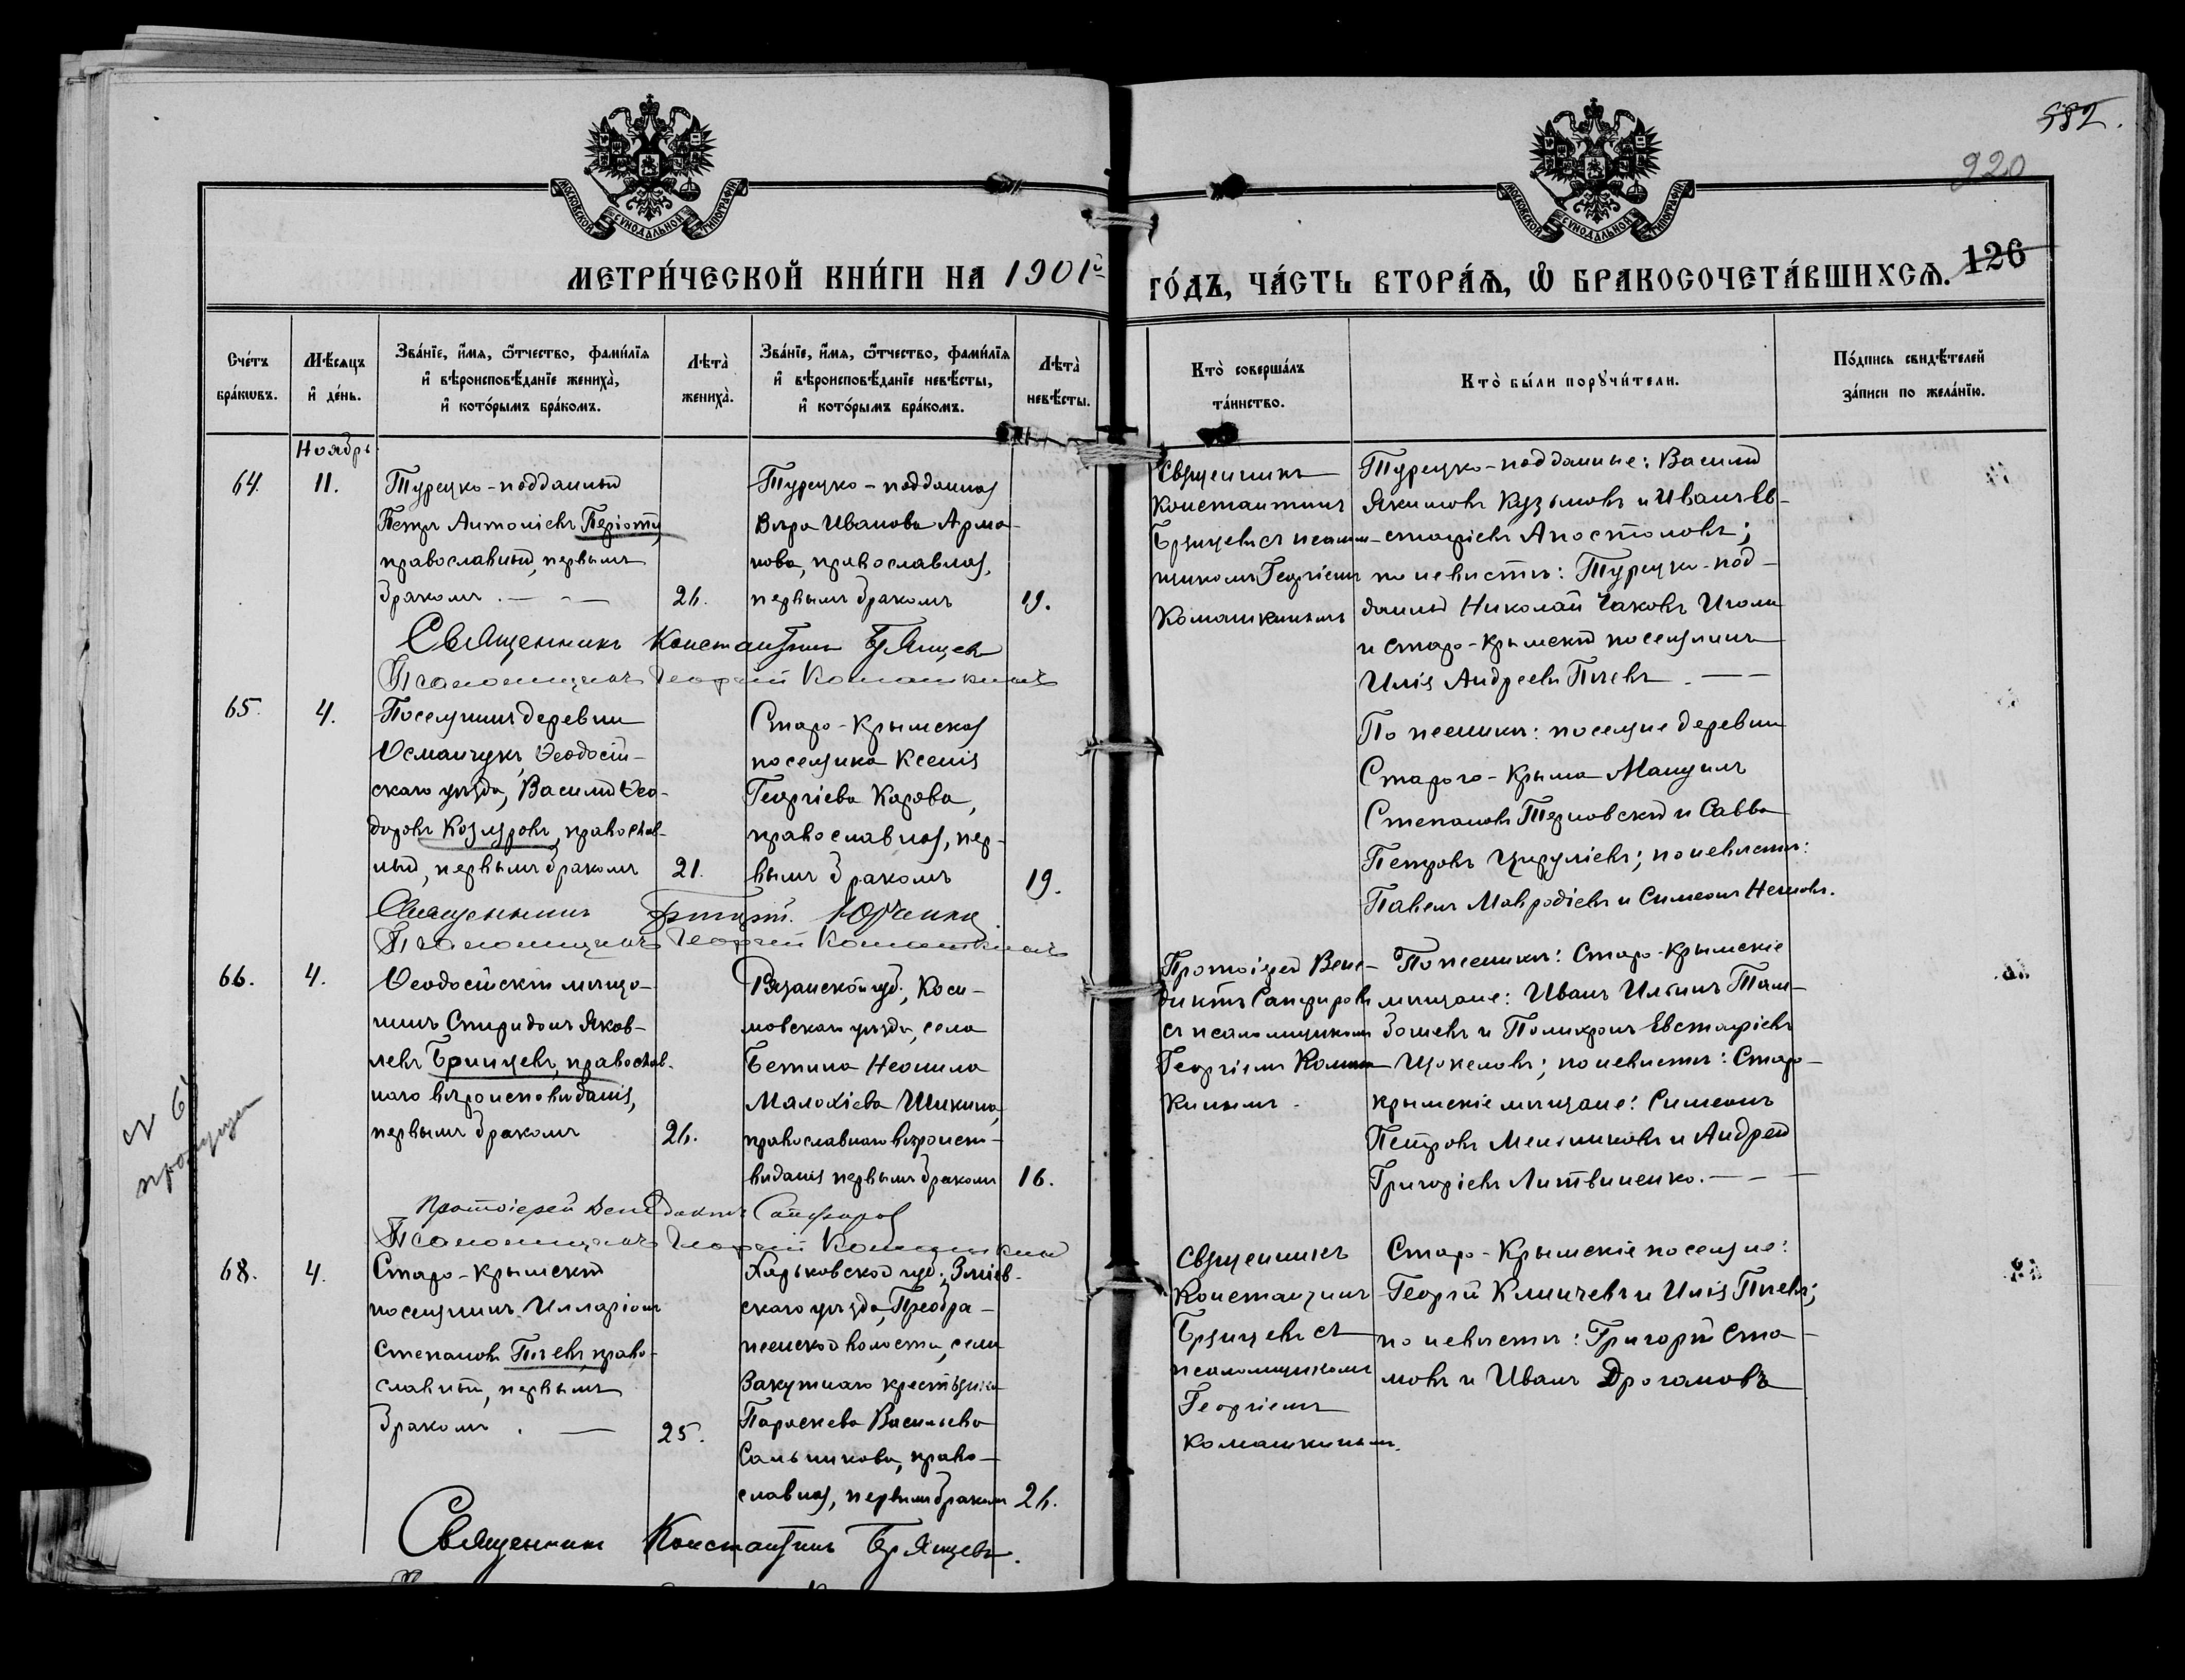 582.
920
126
МОСКОВСКОЙ СѴНОДАЛЬНОЙ ТИПОГРАФІИ
МОСКОВСКОЙ СѴНОДАЛЬНОЙ ТИПОГРАФІИ
МЕТРИ́ЧЕСКОЙ КНИ́ГИ НА 1901й
ГО́ДЪ, ЧА́СТЬ ВТОРА́Ѧ, Ѡ҆ БРАКОСОЧЕТА́ВШИХСѦ.
Сче́тъ бра́кѡвъ.
Мѣ́сяцъ и҆ де́нь.
Зва́нїе, и҆́мя, ѻ҆́тчество, фами́лїя
и҆ вѣроисповѣ́данїе жениха̀,
и҆ кото́рымъ бра́комъ.
Лѣта̀ жениха̀.
Зва́нїе, и҆́мя, ѻ҆́тчество, фами́лїя
и҆ вѣроисповѣ́данїе невѣ́сты,
и҆ кото́рымъ бра́комъ.
Лѣта̀ невѣ́сты.
Кто̀ соверша́лъ
та́инство.
Кто̀ бы́ли порꙋчи́тели.
По́дпись свидѣ́телей
за́писи по жела́нїю.
Ноябрь.
64.
11.
Турецко-подданный
Петръ Антоніевъ Періоти,
православный, первымъ
бракомъ. — - —
26.
Турецко-подданная
Вѣра Иванова Арма-
нова, православная,
первымъ бракомъ
19.
Священникъ
Константинъ
Брянцевъ съ псалом-
щикомъ Георгіемъ
Комашкинымъ
Турецко-подданные: Василій
Якимовъ Кузьмовъ и Иванъ Ев-
стафіевъ Апостоловъ;
по невѣстѣ: Турецко-под-
данный Николай Чаковъ
и старо-крымскій поселянинъ
Илія Андреевъ Пчевъ. — —
Священникъ Константинъ Брянцевъ
Псаломщикъ Георгій Комашкинъ
65.
4.
Поселянинъ деревни
Османчукъ, Ѳеодосій-
скаго уѣзда, Василій Ѳео-
доровъ Козляровъ, православ-
ный, первымъ бракомъ
21.
Старо-Крымская
поселянка Ксенія
Георгіева Карова,
православная, пер-
вымъ бракомъ
19.
По женихѣ: поселяне деревни
Стараго-Крыма
Степановъ Терновскій и Савва
Петровъ Цируліевъ; по невѣстѣ:
Павелъ Мавродіевъ и Симеонъ
Священникъ Юрченко
Псаломщикъ Георгій Комашкинъ
66.
4.
Ѳеодосійскій мѣща-
нинъ Спиридонъ Яков-
левъ Бринцевъ, православ-
наго вѣроисповѣданія,
первымъ бракомъ
26.
Рязанской губ., Каси-
мовскаго уѣзда, села
Бетина Неонила
Малахіева Шикина,
православнаго вѣроиспо-
вѣданія первымъ бракомъ
16.
Протоіерей Вене-
диктъ Сапфировъ
съ псаломщикомъ
Георгіемъ Комаш-
кинымъ.
По женихѣ: Старо-Крымскіе
мѣщане: Иванъ Ильинъ Там-
бошевъ и Поликронъ Евстафіевъ
Щокеловъ; по невѣстѣ: Старо-
крымскіе мѣщане: Симеонъ
Петровъ Мельниковъ и Андрей
Григоріевъ Литвиненко. — - —
Протоіерей Венедиктъ Сапфировъ
Псаломщикъ Георгій Комашкинъ
№ 67
пропущен
68.
4.
Старо-Крымскій
поселянинъ Илларіонъ
Степановъ Пчевъ, право-
славный, первымъ
бракомъ. —
25.
Харьковской губ., Зміев-
скаго уѣзда, Преобра-
женской волости, села
Закутнаго крестьянка
Параскева Васильева
Сальникова, право-
славная, первымъ бракомъ
26.
Священникъ
Константинъ
Брянцевъ съ
псаломщикомъ
Георгіемъ
Комашкинымъ.
Старо-Крымскіе поселяне:
Георгій Клинчевъ и Илія Пчевъ;
по невѣстѣ: Григорій Ста-
мовъ и Иванъ Драгановъ
Священникъ Константинъ Брянцевъ.